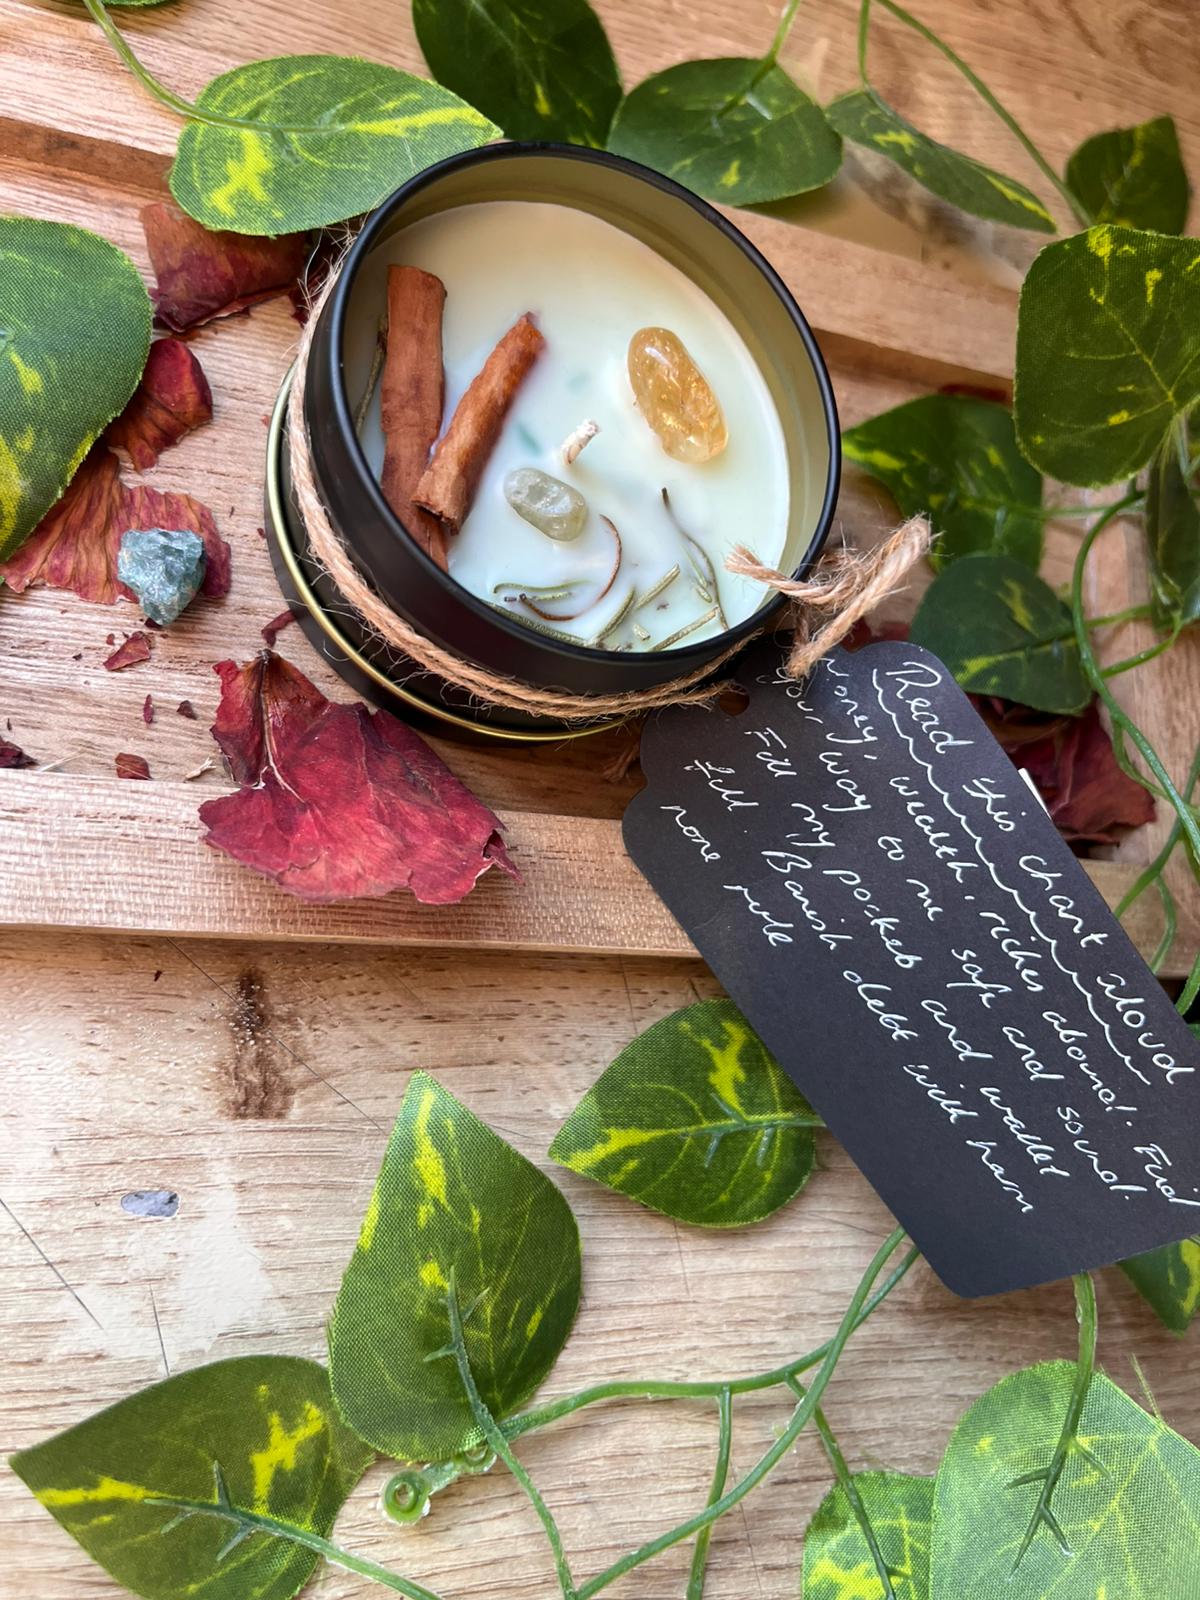 Read this chant aloud
money, wealth, riches abound! Find
your way to me safe and sound!
Fill my pocket and wallet
full. Banish debt with harm
none rule